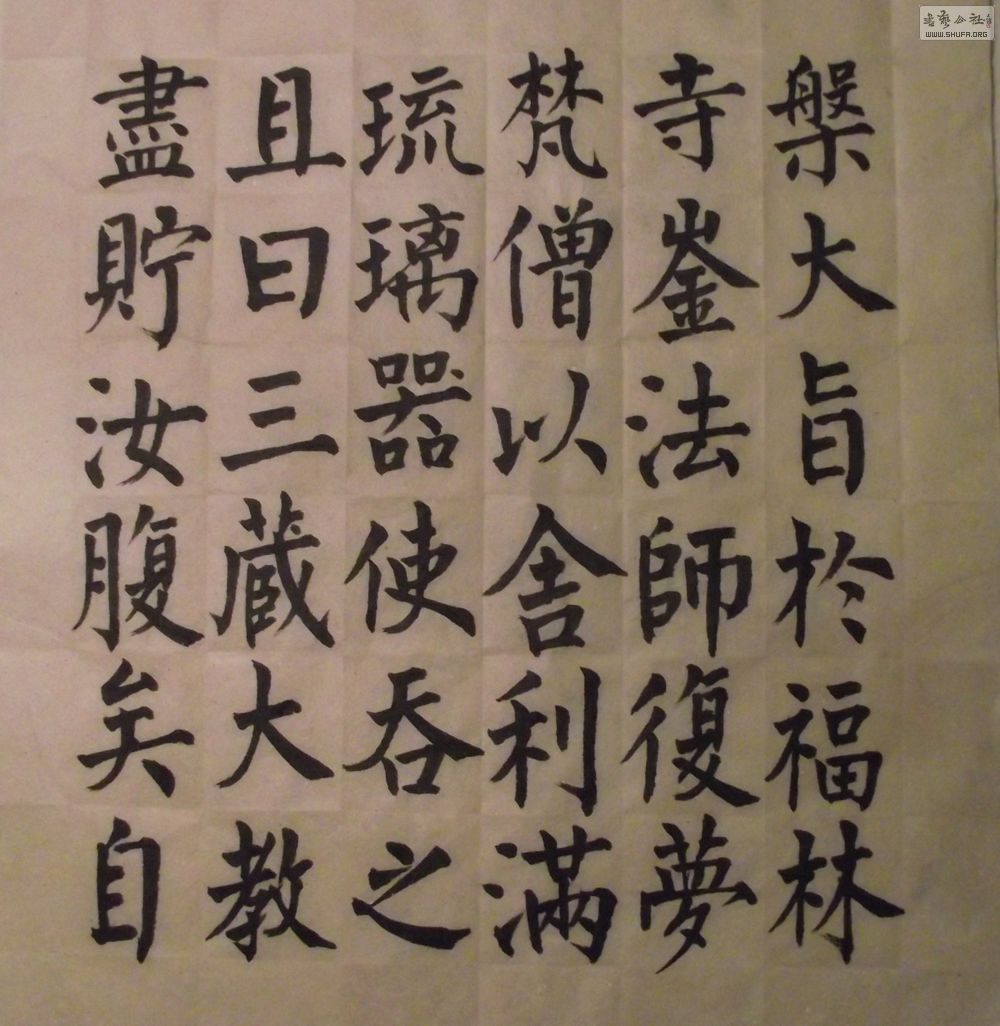 槃大旨於福林
寺崟法師復夢
梵僧以舎利滿
琉璃器使吞之
且曰三蔵大教
盡貯汝腹矣自
WWW.SHUFA.ORG